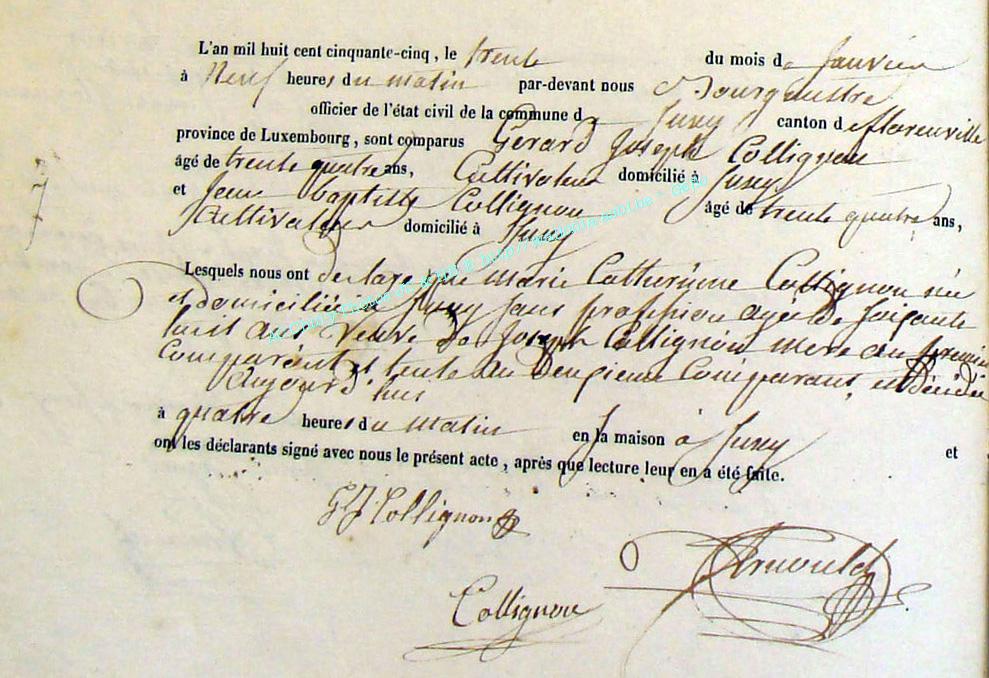 L'an mil huit cent cinquante-cinq, le trente du mois de Janvier
à Neuf heures du matin par-devant nous Bourgmestre
officier de l'état civil de la commune de Jusey canton de florenville
province de Luxembourg, sont comparus Gérard Joseph Collignon
âgé de trente quatre ans, Cultivateur domicilié à Jusey
et Jean baptiste Collignon âgé de trente quatre ans,
Cultivateur domicilié à Jusey
Lesquels nous ont declaré que Marie Catherinne Collignon née
et domiciliée à Jusey sans proffession agée de Soixante
huit ans veuve de Joseph Collignon mere au premier
Comparant et tente au deuxieme Comparant est décédée
Aujourd'hui
à quatre heures du matin en la maison à Jusey et
ont les déclarants signé avec nous le présent acte, après que lecture leur en a été faite.
GJ Collignon
Arnould
Collignon